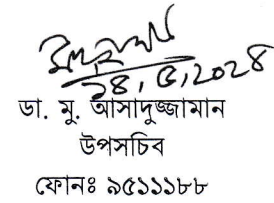 ১৪,৫,২০২৪
ডা. মু. আসাদুজ্জামান
উপসচিব
ফোনঃ ৯৫১১১৮৮